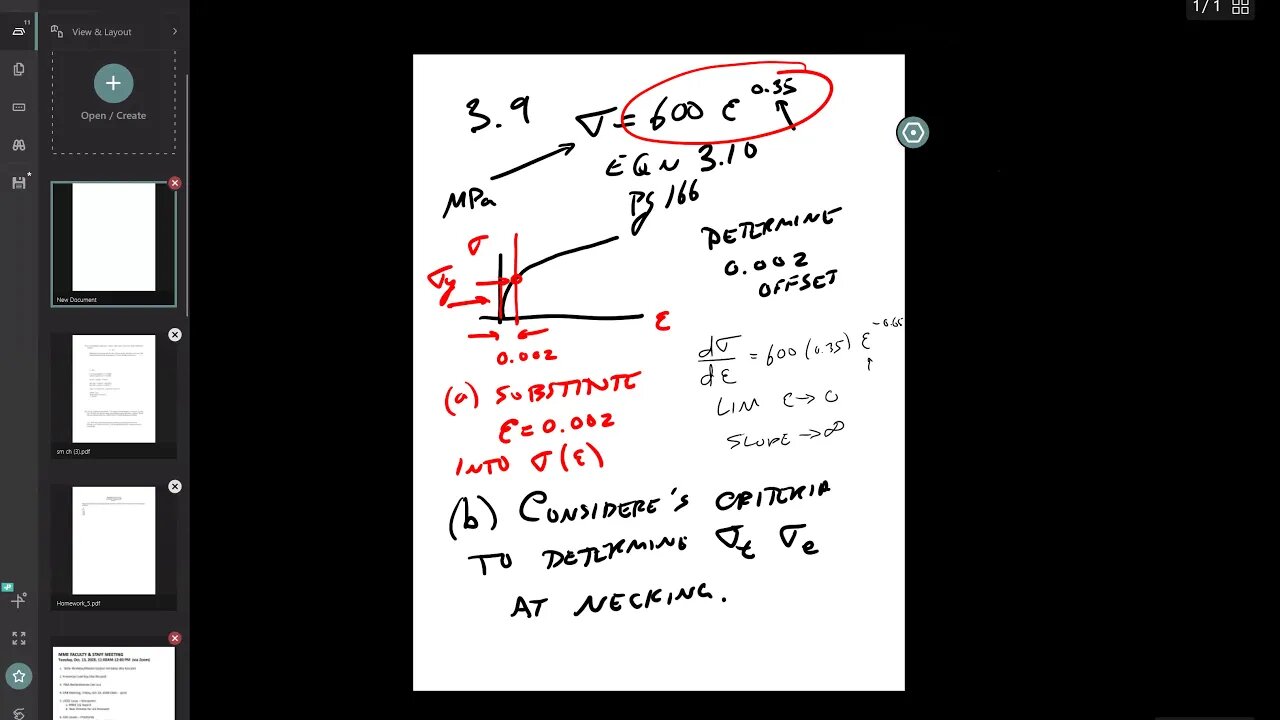 1/1
11
View & Layout
Open / Create
New Document
sm ch (3).pdf
Homework_5.pdf
MME FACULTY & STAFF MEETING
3.9 σ = 600 ε^0.35
EQN 3.10
MPa
pg 166
DETERMINE
0.002
OFFSET
σ
σy
ε
0.002
dσ/dε = 600 (0.35) ε^-0.65
LIM ε → 0
SLOPE → ∞
(a) SUBSTITUTE
ε = 0.002
INTO σ(ε)
(b) CONSIDERE'S CRITERIA
TO DETERMINE σt σe
AT NECKING.